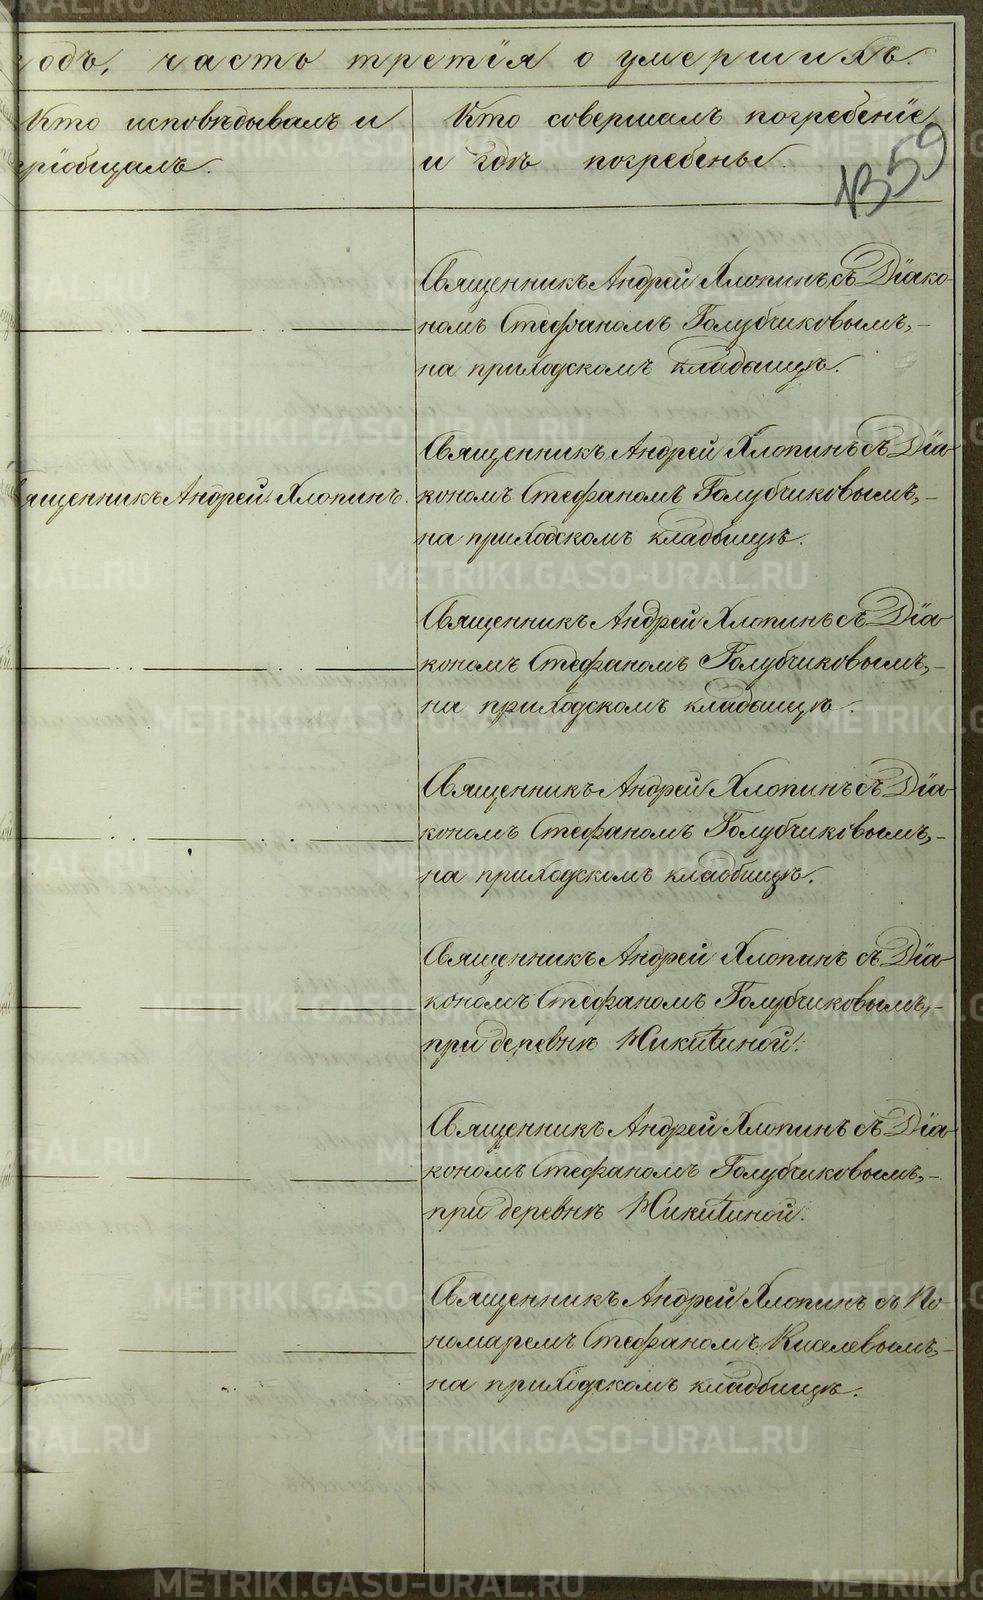 одъ, часть третія о умершихъ.
Кто исповѣдывалъ и
пріобщалъ.
Кто совершалъ погребеніе
и гдѣ погребены.
59
Священникъ Андрей Хлопинъ съ Діако-
номъ Стефаномъ Голубчиковымъ,-
на приходскомъ кладбищѣ.
Священникъ Андрей Хлопинъ.
Священникъ Андрей Хлопинъ съ Діа-
кономъ Стефаномъ Голубчиковымъ,-
на приходскомъ кладбищѣ.
Священникъ Андрей Хлопинъ съ Діа-
кономъ Стефаномъ Голубчиковымъ,-
на приходскомъ кладбищѣ.
Священникъ Андрей Хлопинъ съ Діа-
кономъ Стефаномъ Голубчиковымъ,-
на приходскомъ кладбищѣ.
Священникъ Андрей Хлопинъ съ Діа-
кономъ Стефаномъ Голубчиковымъ,-
при деревнѣ Никитиной.
Священникъ Андрей Хлопинъ съ Діа-
кономъ Стефаномъ Голубчиковымъ,-
при деревнѣ Никитиной.
Священникъ Андрей Хлопинъ съ По-
номаремъ Стефаномъ Киселевымъ,-
на приходскомъ кладбищѣ.
METRIKI.GASO-URAL.RU